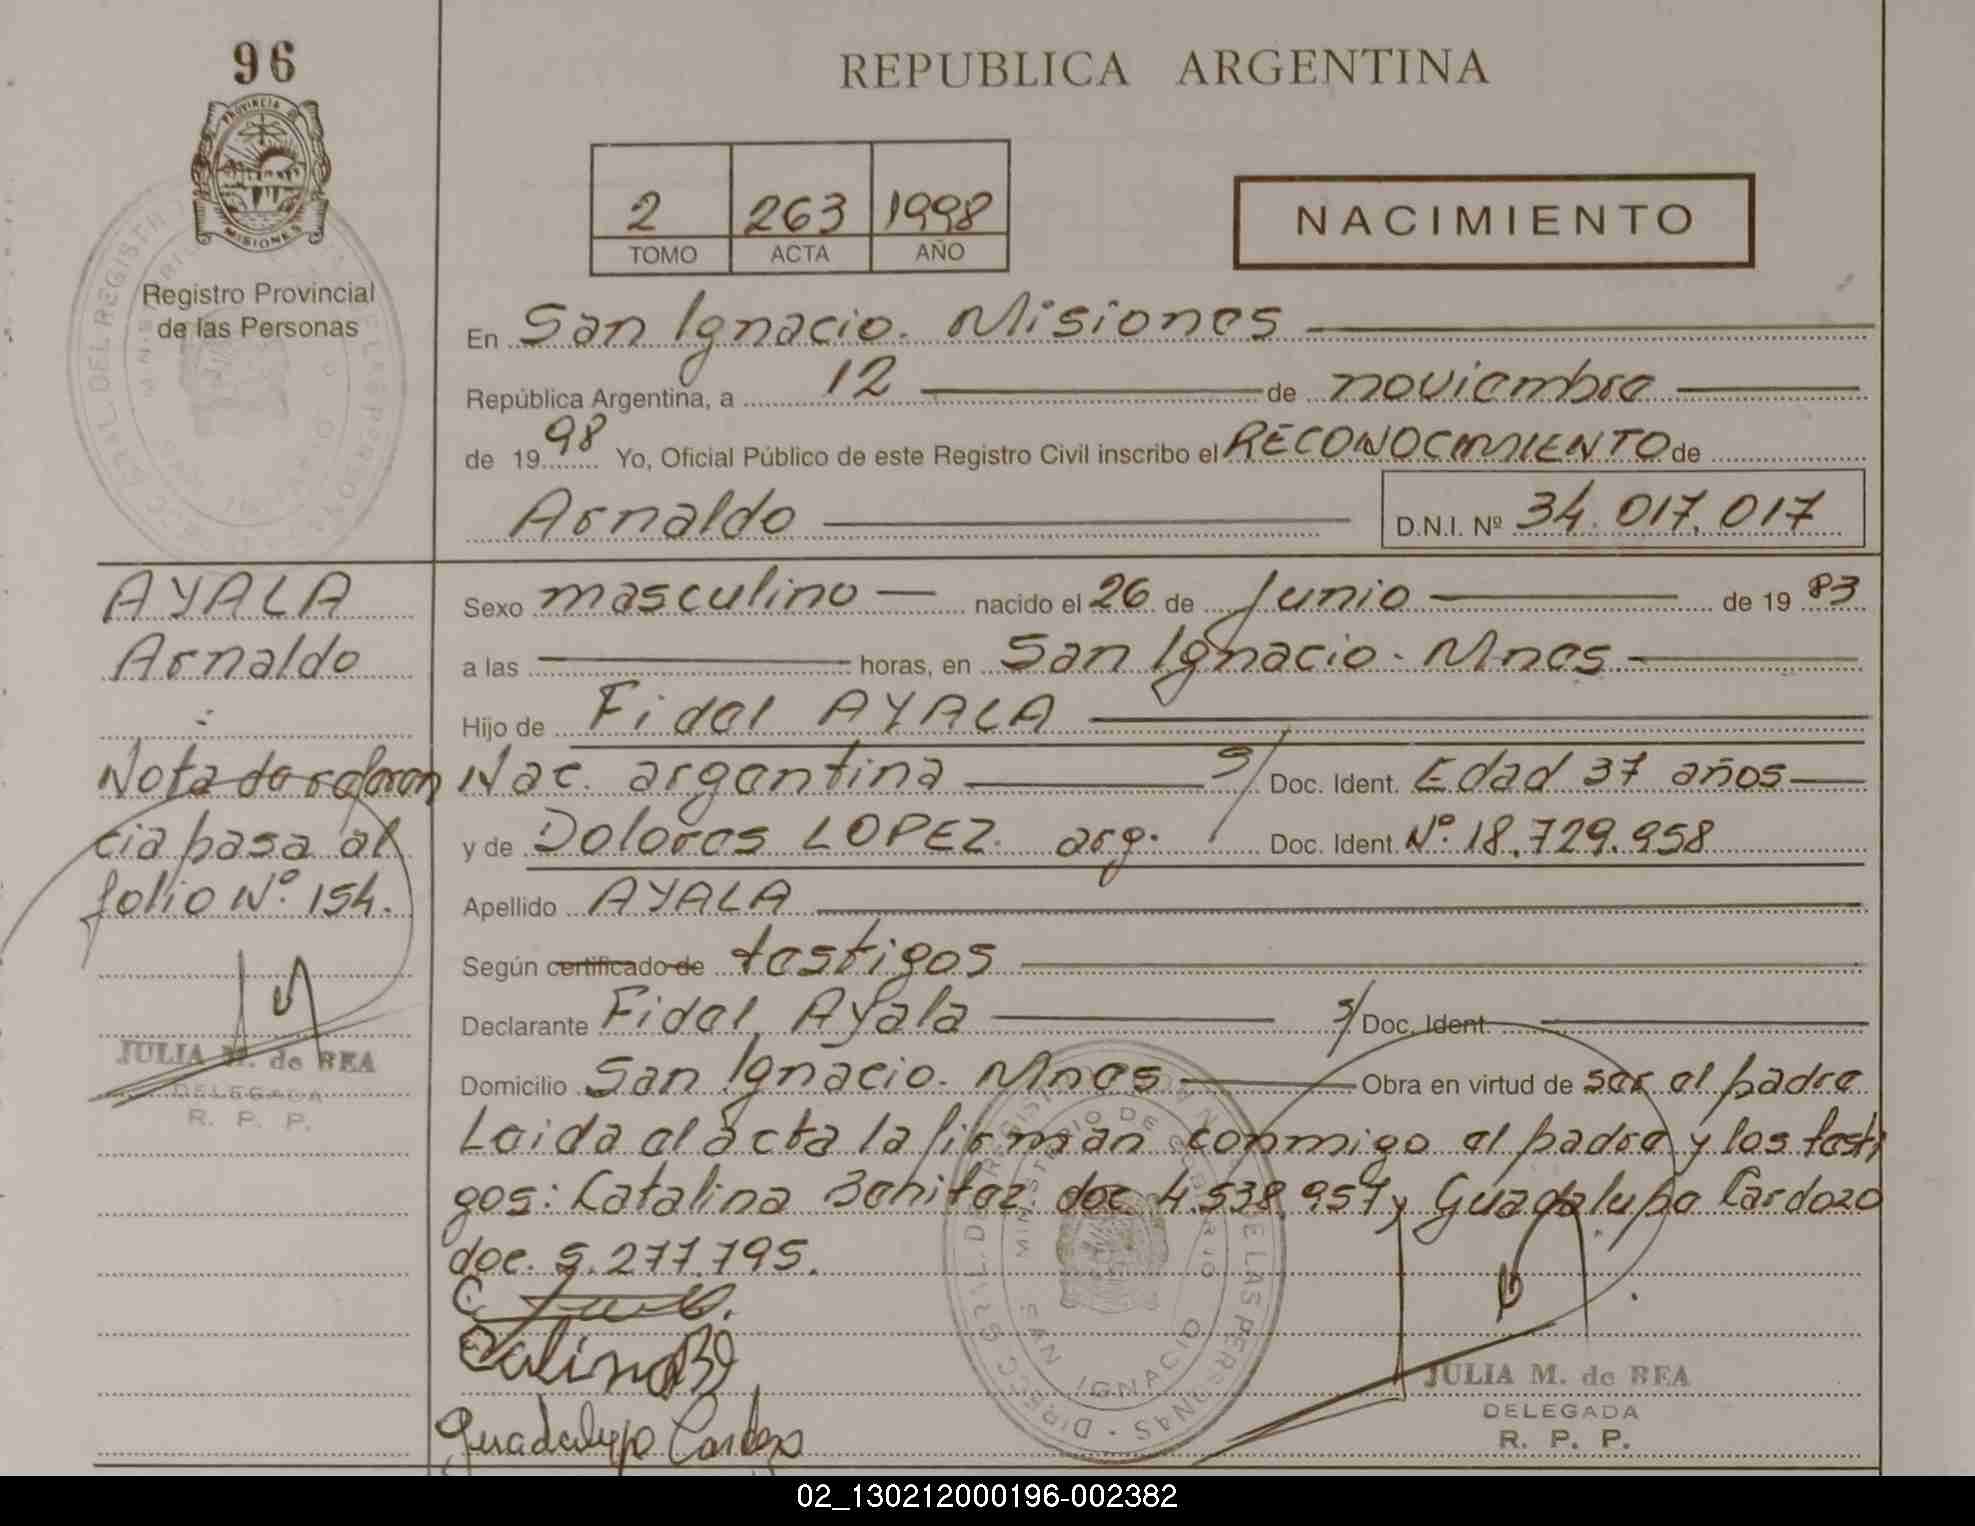 96
REPUBLICA ARGENTINA
PROVINCIA
MISIONES
Registro Provincial
de las Personas
2 263 1998
TOMO ACTA AÑO
NACIMIENTO
En San Ignacio. Misiones
República Argentina, a 12 de noviembre
de 1998 Yo, Oficial Público de este Registro Civil inscribo el RECONOCIMIENTO de
Arnaldo D.N.I. Nº 34.017.017
AYALA
Arnaldo
Nota de referen
cia pasa al
folio Nº 154.
JULIA M. de REA
DELEGADA
R. P. P.
Sexo masculino nacido el 26 de Junio de 1983
a las horas, en San Ignacio - Mnes
Hijo de Fidel AYALA
Nac. argentina s/ Doc. Ident. Edad 37 años
y de Dolores LOPEZ. arg. Doc. Ident. Nº 18.729.958
Apellido AYALA
Según certificado de testigos
Declarante Fidel Ayala s/ Doc. Ident.
Domicilio San Ignacio. Mnes Obra en virtud de ser el padre
Leida el acta la firman conmigo el padre y los testi
gos: Catalina Benitez doc. 4.538.957 y Guadalupe Cardozo
doc. 5.277.795.
Guadalupe Cardozo
MINISTERIO DE GOBIERNO
SAN IGNACIO
JULIA M. de REA
DELEGADA
R. P. P.
02_130212000196-002382